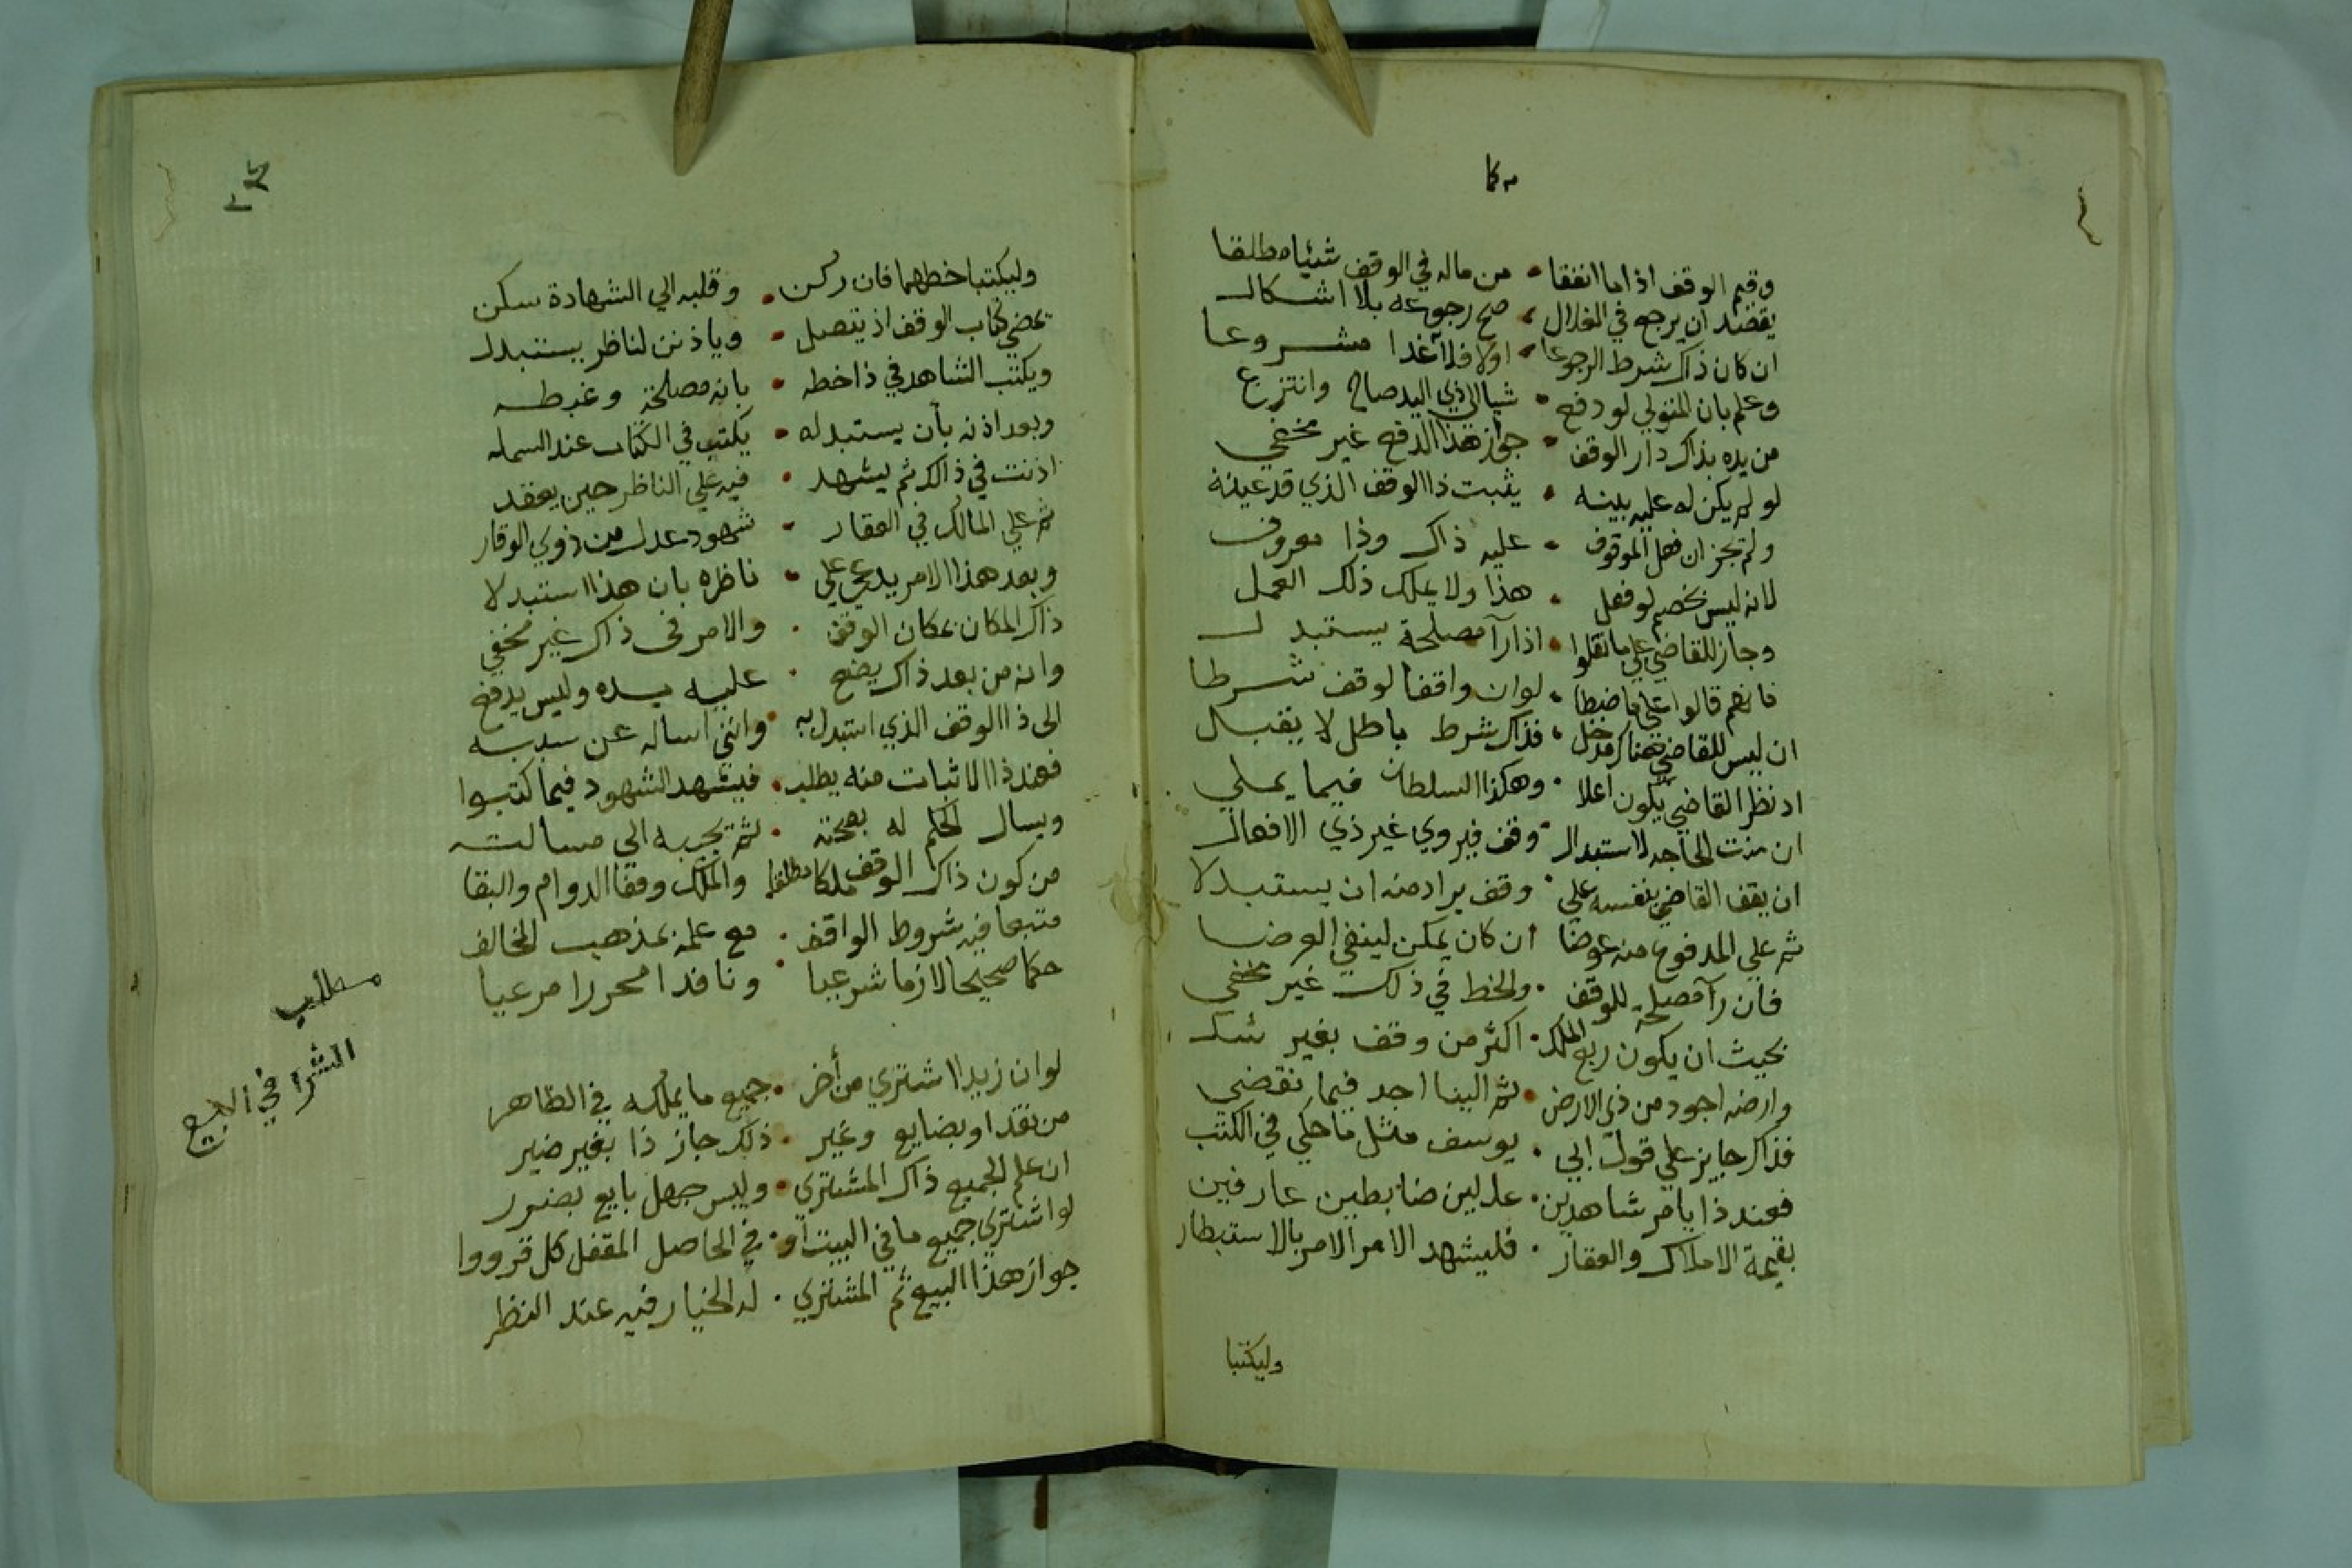 وقيم الوقف اذا ما انفقا • من ماله في الوقف شئيا مطلقا
يقصد ان يرجع في الغلال • صح رجوعه بلا اشكال
ان كان ذاك شرط الرجوعا • اولا فلا غدا مشروعا
وعلم بان المتولي لو دفع • شيا الي ذي اليد صالح وانتزع
من يده بذاك دار الوقف • جواز هذا الدفع غير مخفي
لو لم يكن له عليه بينه • يثبت ذا الوقف الذي قد عينه
ولم يجز ان فعل الموقوف • عليه ذاك وذا معروف
لانه ليس بخصم لو فعل • هذا ولا يملك ذلك العمل
وجاز للقاضي علي ما نقلوا • اذا رآ مصلحة يستبدل
فانهم قالوا علي ما ضبطا • لو ان واقفا لوقف شرطا
ان ليس للقاضي هناك مدخل • فذاك شرط باطل لا يقبل
اذ نظر القاضي يكون اعلا • وهكذا السلطان فيما يملي
ان مزت الحاجه لاستبدال • وقف فيروي غير ذي الافعال
ان يقف القاضي بنفسه علي • وقف يراد منه ان يستبدلا
ثم علي المدفوع منه عوضا ان كان يمكن لينفي العوضا
فان رآ مصلحة للوقف • والخط في ذلك غير مخفي
بحيث ان يكون ريع الملك • اكثر من وقف بغير شك
وارضه اجود من ذي الارض • ثم البنا اجد فيما نقضي
فذاك جايز علي قول ابي • يوسف مثل ما حكي في الكتب
فعند ذا يامر شاهدين • عدلين ضابطين عارفين
بقيمة الاملاك والعقار • فليشهد الامر الامر بالاستبطار
وليكتبا
وليكتبا خطهما فان ركن • وقلبه الي الشهادة سكن
بمضي كتاب الوقف اذ يتصل • وياذنن لناظر يستبدل
ويكتب الشاهد في ذا خطه • بانه مصلحة وغبطه
وبعد اذنه بأن يستبدله • يكتب في الكتاب عند البسمله
اذنت في ذالك ثم يشهد • فيه علي الناظر حين يعقد
ثم علي المالك في العقار • شهود عدل من ذوي الوقار
وبعد هذا الامر يدعي علي • ناظره بان هذا استبدلا
ذاك المكان بمكان الوقف • والامر في ذاك غير مخفي
وانه من بعد ذاك يضع • عليه يده وليس يدفع
الي ذا الوقف الذي استبدل به • وانني اساله عن سببه
فعند ذا الاثبات منه يطلب • فيشهد الشهود فيما كتبوا
ويسال الحكم له بصحته • ثم يجيبه الي مسألته
من كون ذاك الوقف ملكا مطلقا والملك وقفا الدوام والبقا
متبعا فيه شروط الواقف • مع علمه بمذهب المخالف
حكما صحيحا لازما شرعيا • ونافذا محررا مرعيا
مطلب
الشرا في البيع
لو ان زيدا اشتري من أخر • جميع ما يملكه في الظاهر
من نقد او بضايع وغير • ذلك جاز ذا بغير ضير
ان علم الجميع ذاك المشتري • وليس جهل بايع بضرر
لو اشتري جميع ما في البيت أو • في الحاصل المقفل كل قد رووا
جواز هذا البيع ثم المشتري • له الخيار فيه عند النظر